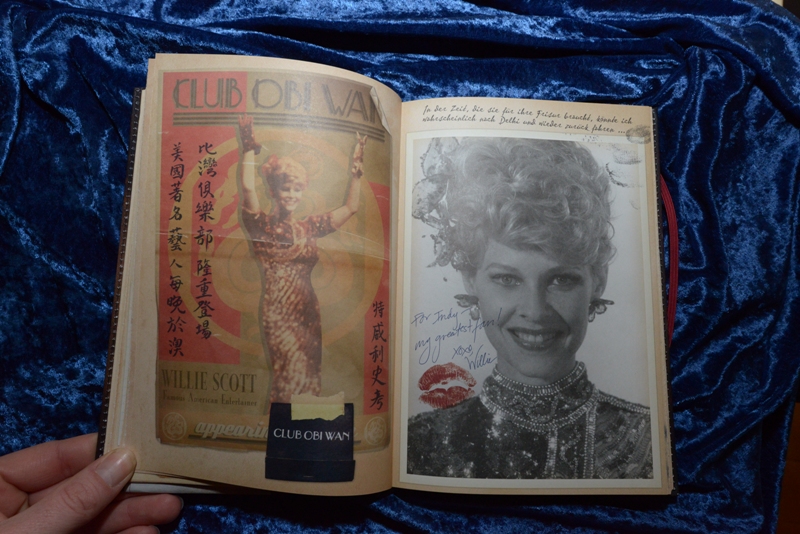 CLUB OBI WAN
美國著名藝人每晚於澳
比灣俱樂部隆重登場
特威利史考
WILLIE SCOTT
Famous American Entertainer
appearin
CLUB OBI WAN
In der Zeit, die sie für ihre Frisur braucht, könnte ich
wahrscheinlich nach Delhi und wieder zurück fahren ...
For Indy –
my greatest fan!
xoxo,
Willie